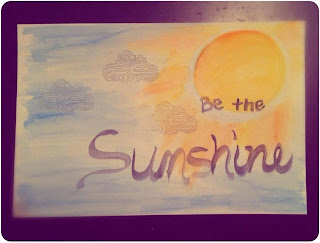 Be the
Sunshine